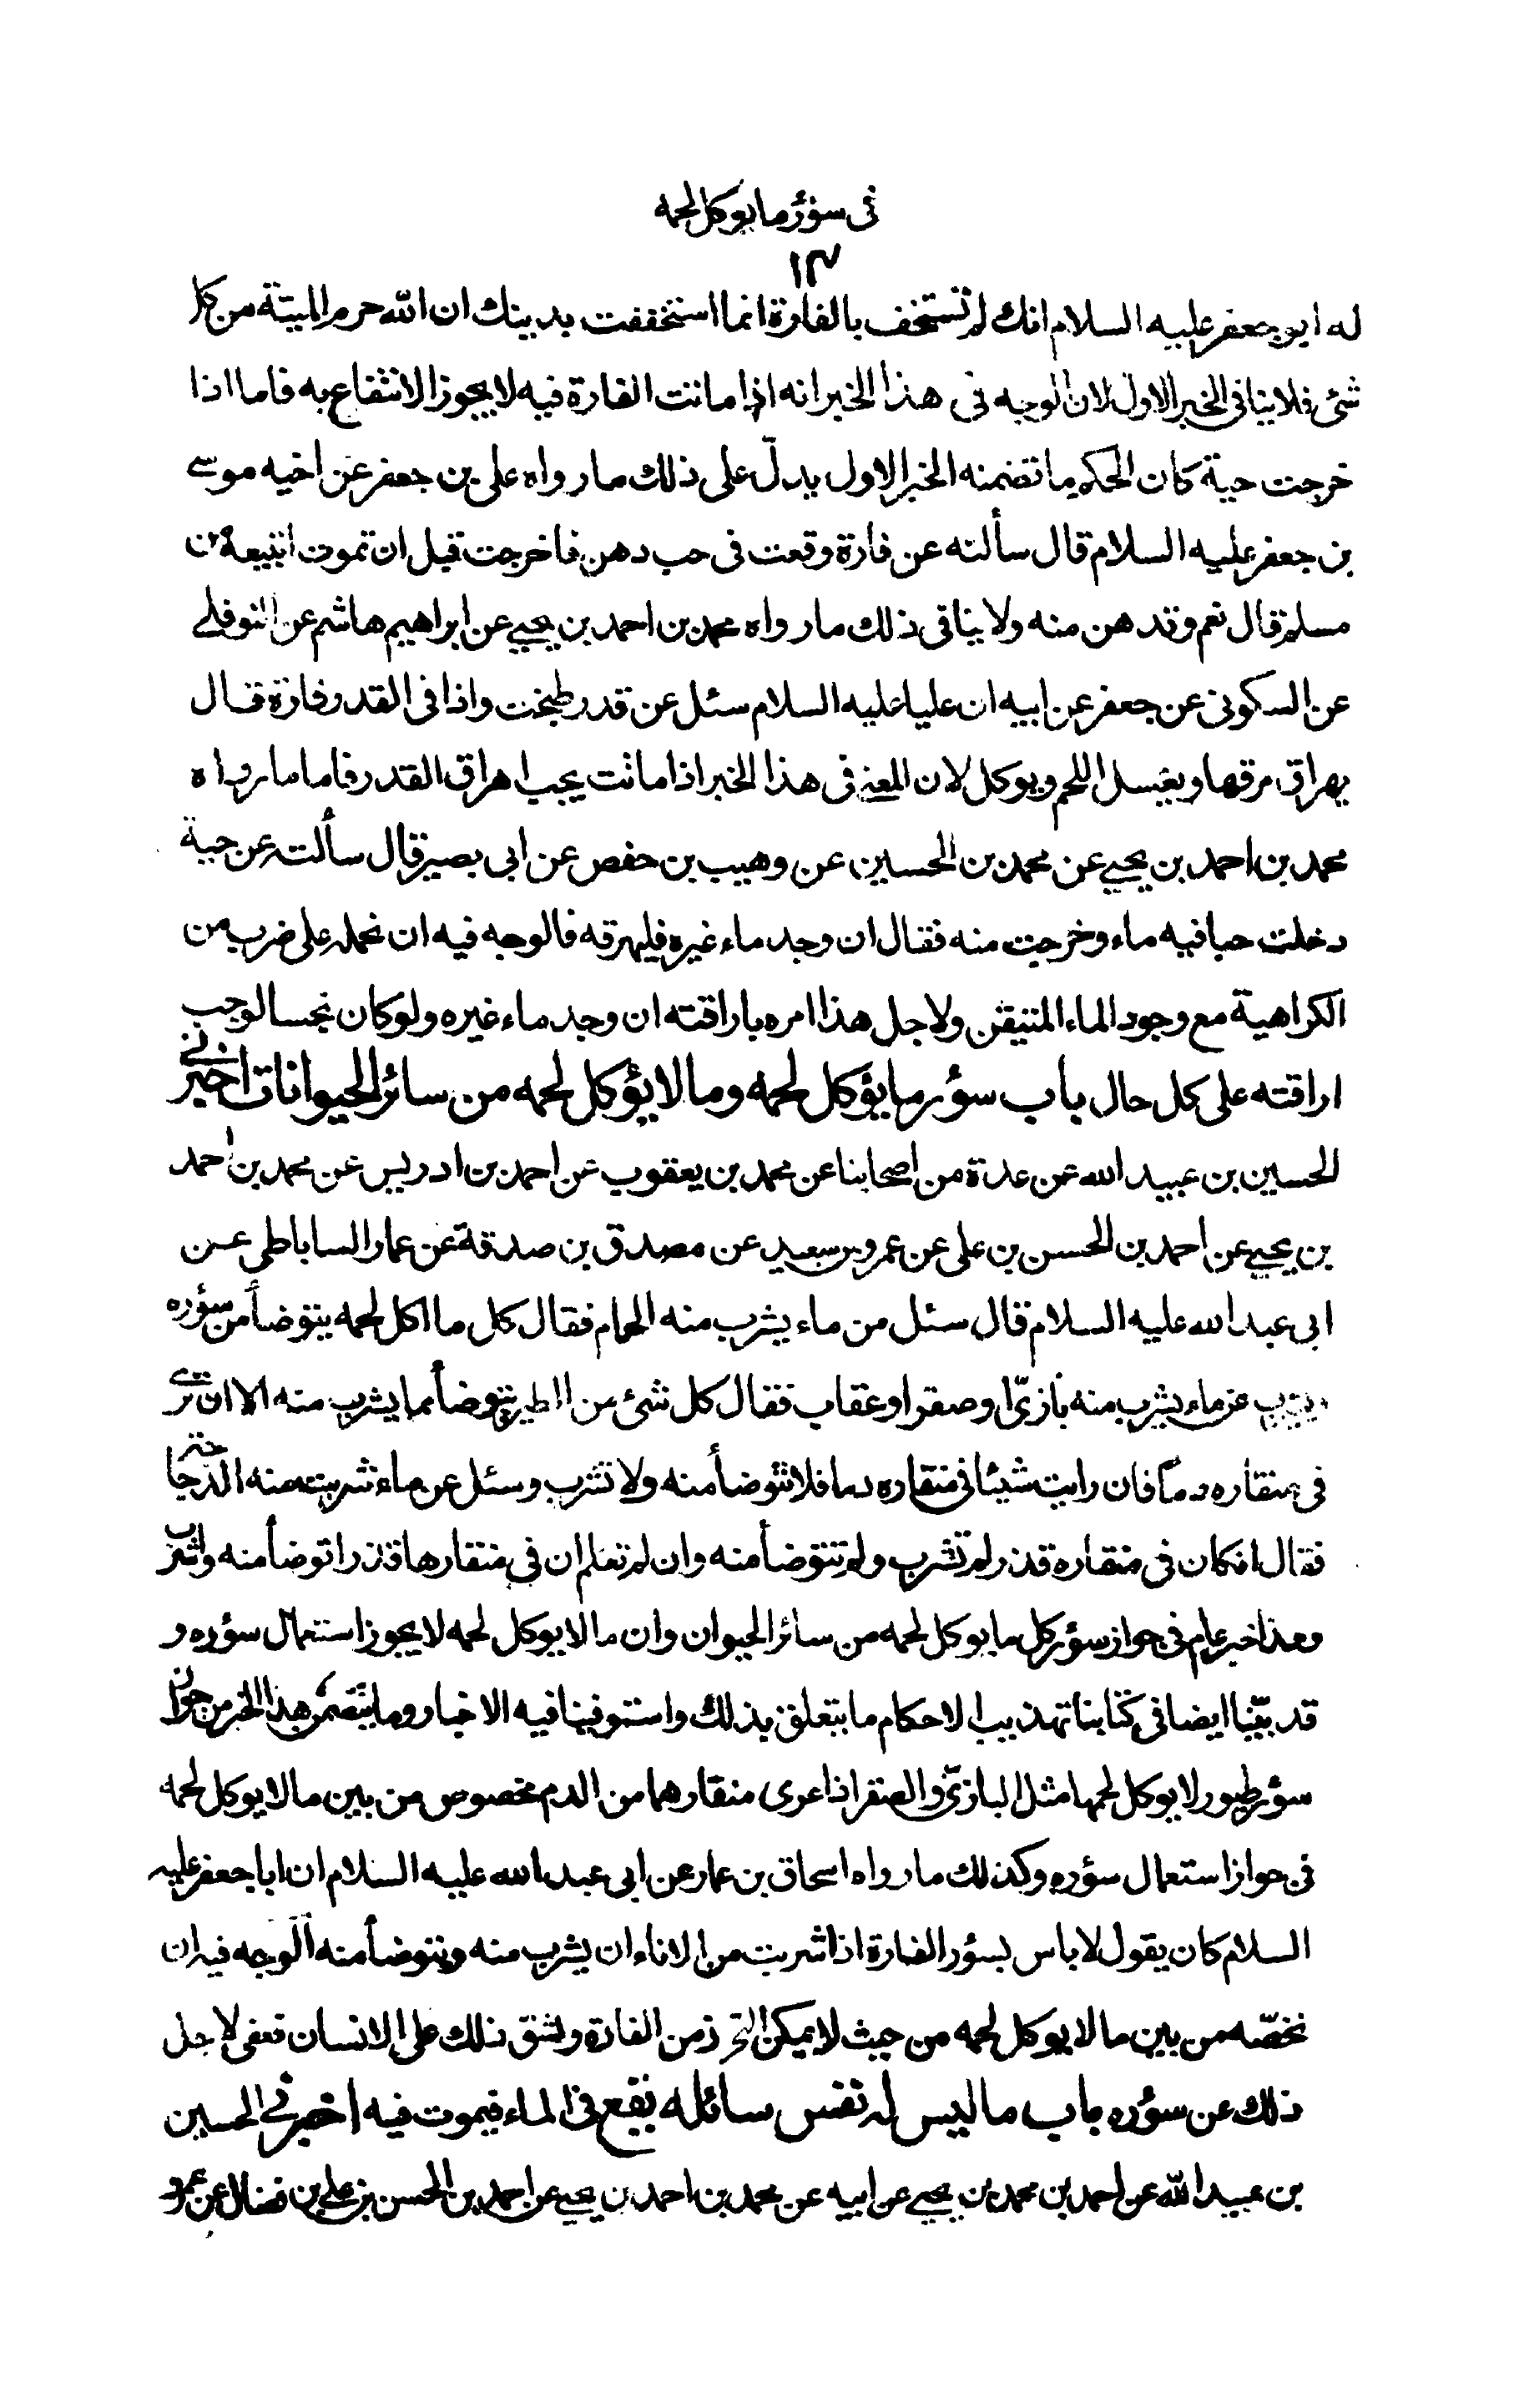 فى سؤر ما يوكل لحمه
١٣
له ابو جعفر عليه السلام انك لم تستخف بالفارة انما استخففت بدينك ان الله حرم الميتة من كل
شئ فلا ينافى الخبر الاول لان الوجه فى هذا الخبر انه اذا ماتت الفارة فيه لا يجوز الانتفاع به فاما اذا
خرجت حية كان الحكم ما تضمنه الخبر الاول يدلّ على ذلك ما رواه على بن جعفر عن اخيه موسے
بن جعفر عليه السلام قال سألته عن فارة وقعت فى حب دهن فاخرجت قبل ان تموت انبيعه من
مسلم قال نعم وتدهن منه ولا ينافى ذلك ما رواه محمد بن احمد بن يحيے عن ابراهيم هاشم عن النوفلے
عن السكونى عن جعفر عن ابيه ان عليا عليه السلام سئل عن قدر طبخت واذا فى القدر فارة قال
يهراق مرقها ويغسل اللحم ويوكل لان المعنے فى هذا الخبر اذا ماتت يجب اهراق القدر فاما ما رواه
محمد بن احمد بن يحيے عن محمد بن الحسين عن وهيب بن حفص عن ابى بصير قال سألته عن حية
دخلت حبا فيه ماء وخرجت منه فقال ان وجد ماء غيره فليهرقه فالوجه فيه ان نحمله على ضرب من
الكراهية مع وجود الماء المتيقن ولاجل هذا امره باراقته ان وجد ماء غيره ولو كان نجسا لوجب
اراقته على كل حال باب سؤر ما يؤكل لحمه وما لا يؤكل لحمه من سائر الحيوانات اخبرنے
الحسين بن عبيد الله عن عدة من اصحابنا عن محمد بن يعقوب عن احمد بن ادريس عن محمد بن احمد
بن يحيے عن احمد بن الحسن بن على عن عمرو بن سعيد عن مصدق بن صدقة عن عمار الساباطى عن
ابى عبد الله عليه السلام قال سئل من ماء يشرب منه الحمام فقال كل ما اكل لحمه يتوضأ من سؤره
ويشرب عن ماء يشرب منه بازىّ او صقر او عقاب فقال كل شئ من الطير يتوضأ مما يشرب منه الا ان ترے
فى منقاره دماً فان رايت شيئا فى منقاره دما فلا تتوضأ منه ولا تشرب وسئل عن ماء شربت منه الدجاجة
فقال ان كان فى منقاره قذر لم تشرب ولم تتوضأ منه وان لم تعلم ان فى منقارها قذرا توضأ منه واشرب
وهذا خبر عام فى جواز سؤر كل ما يوكل لحمه من سائر الحيوان وان ما لا يوكل لحمه لا يجوز استعمال سؤره و
قد بيّنا ايضا فى كتابنا تهذيب الاحكام ما يتعلق بذلك واستوفينا فيه الاخبار وما يتضمن هذا الخبر من جواز
سؤر طيور لا يوكل لحمها مثل البازىّ والصقر اذا عرى منقارهما من الدم مخصوص من بين ما لا يوكل لحمه
فى جواز استعمال سؤره وكذلك ما رواه اسحاق بن عمار عن ابى عبد الله عليه السلام ان ابا جعفر عليه
السلام كان يقول لا باس بسؤر الفارة اذا شربت من الاناء ان يشرب منه ويتوضأ منه الوجه فيه ان
نخصّه من بين ما لا يوكل لحمه من حيث لا يمكن التحرز من الفارة ويشق ذلك على الانسان فعفى لاجل
ذلك عن سؤره باب ما ليس له نفس سائله يقع فى الماء فيموت فيه اخبرنے الحسين
بن عبيد الله عن احمد بن محمد بن يحيے عن ابيه عن محمد بن احمد بن يحيے عن احمد بن الحسن بن على بن فضال عن عمرو